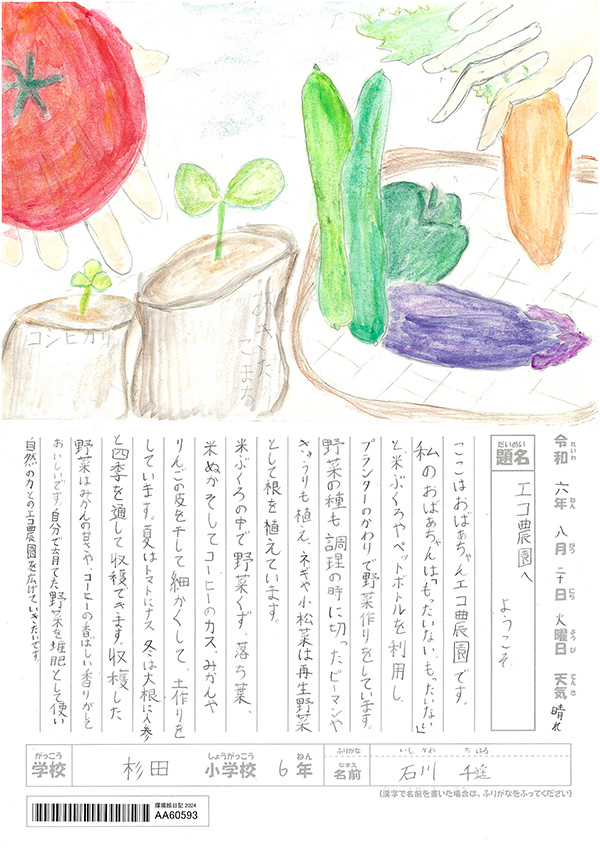 コシヒカリ
あきた
こまち
令和六年八月二十日火曜日天気晴れ
れいわ ねん がつ にち ようび てんき
だいめい
題名
エコ農園へ
ようこそ
ここはおばあちゃんエコ農園です。
私のおばあちゃんは「もったいない、もったいない」
と米ぶくろやペットボトルを利用し、
プランターのかわりで野菜作りをしています。
野菜の種も調理の時に切ったピーマンや
きゅうりも植え、ネギや小松菜は再生野菜
として根を植えています。
米ぶくろの中で野菜くず、落ち葉、
米ぬかそしてコーヒーのカス、みかんや
りんごの皮を干して細かくして、土作りを
しています。夏はトマトにナス冬は大根に人参
と四季を通して収穫できます。収穫した
野菜はみかんの甘さや、コーヒーの香ばしい香りがして
おいしいです。自分で育てた野菜を堆肥として使い
自然の力とのエコ農園を広げていきたいです。
がっこう しょうがっこう ねん
学校 杉田 小学校 6年
ふりがな いしかわ ちはる
なまえ
名前 石川 千遥
(漢字で名前を書いた場合は、ふりがなをふってください)
環境絵日記 2024
AA60593